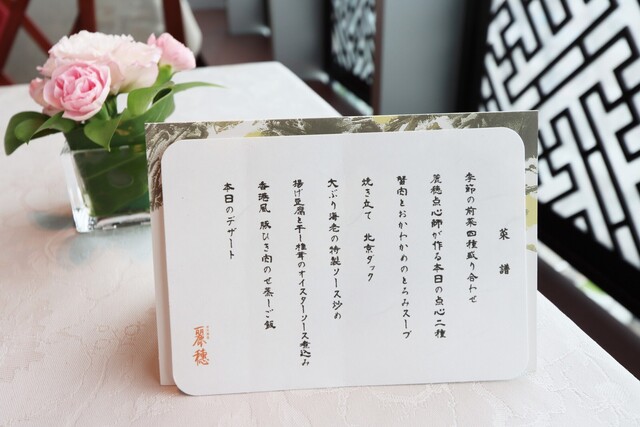 菜譜
季節の前菜四種盛り合わせ
麗穂点心師が作る本日の点心二種
蟹肉とおかわかめのとろみスープ
焼き立て 北京ダック
大ぶり海老の特製ソース炒め
揚げ豆腐と干し椎茸のオイスターソース煮込み
香港風 豚ひき肉のせ蒸しご飯
本日のデザート
麗穂